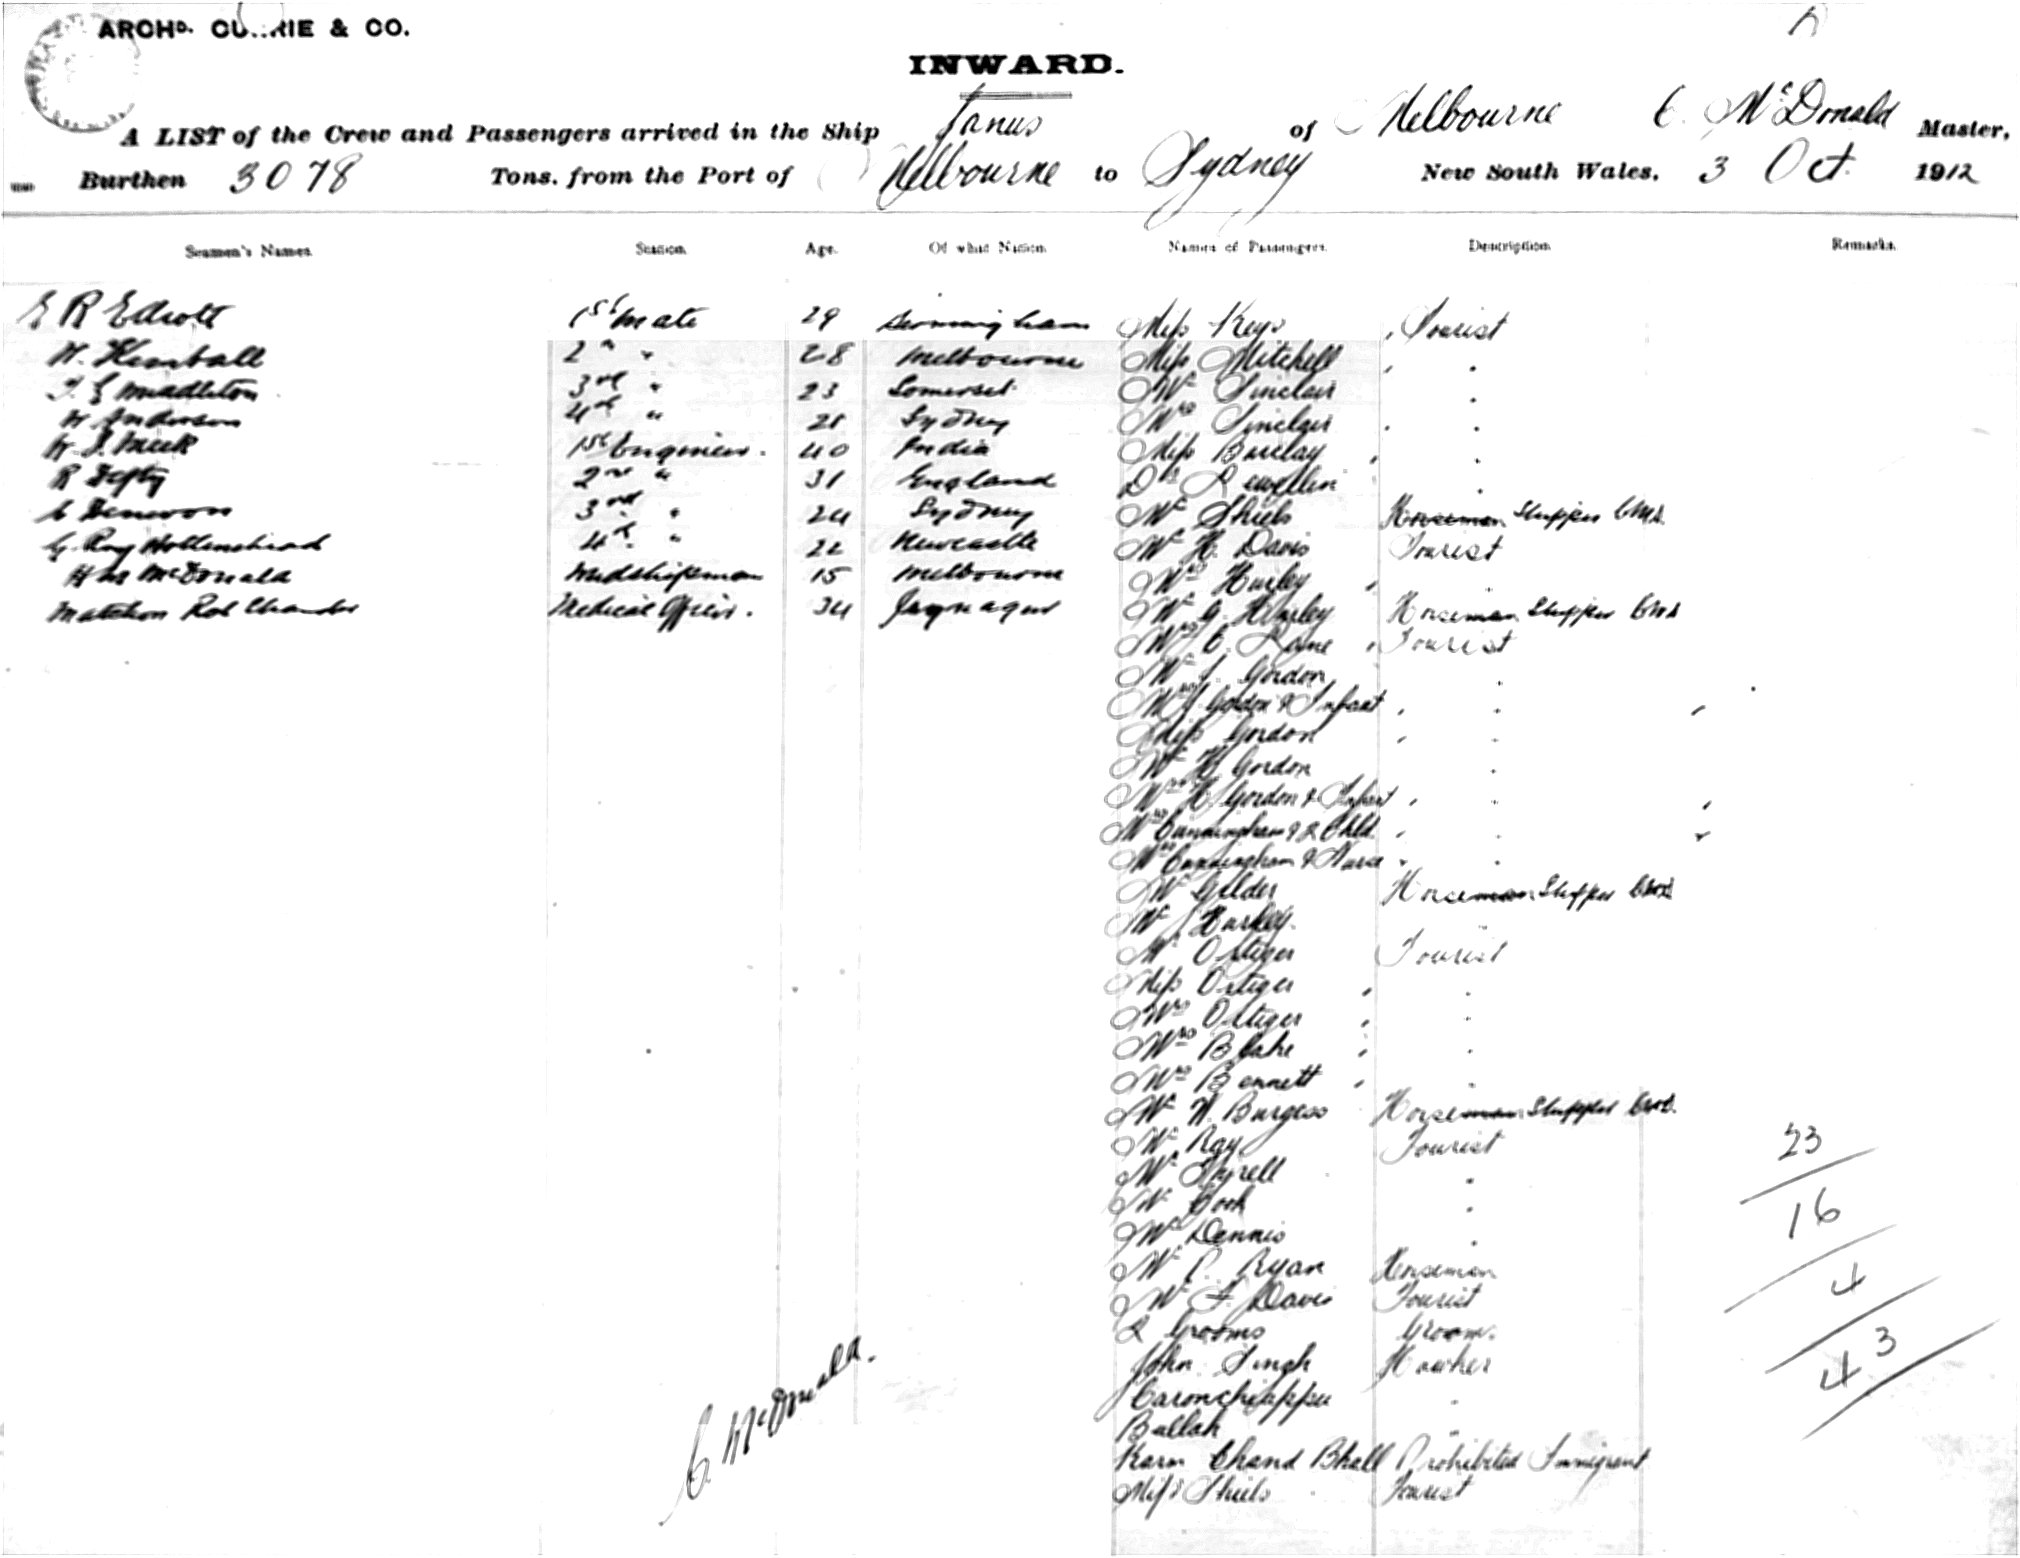 ARCHD. CURRIE & CO.
INWARD.
A LIST of the Crew and Passengers arrived in the Ship Janus of Melbourne C. McDonald Master,
Burthen 3078 Tons. from the Port of Melbourne to Sydney New South Wales, 3 Oct. 1912
Seamen's Names. Station. Age. Of what Nation. Names of Passengers. Description. Remarks.
E R 1st Mate 29 Miss Keys Tourist
W. Kemball 2nd " 28 Melbourne Miss Mitchell "
Middleton 3rd " 23 Somerset Mr Sinclair "
Anderson 4th " 21 Sydney Mrs Sinclair "
Meek 1st Engineer. 40 India Miss Barclay "
R 2nd " 31 England Dr Lewellin "
3rd " 24 Sydney Mr Shiels Horseman Shipper
G. Roy Hollinshead 4th " 22 Newcastle Mr H. Davis Tourist
McDonald Midshipman 15 Melbourne Mrs Hurley "
Rob Medical Officer. 34 Mr G. Hurley Horseman Shipper
Mrs C. Tourist
Mr J. Gordon "
Mrs J Gordon & Infant "
Miss Gordon "
Mr H Gordon "
Mrs H. Gordon & Infant "
Mrs Cunningham & 2 Chld. "
Mrs Cunningham & Nurse "
Mr Gilder Horseman Shipper
Mr J Hurley. "
Mr Ostiger Tourist
Miss Ostiger "
Mrs Ostiger "
Mrs Blake "
Mrs Bennett "
Mr W. Burgess Horseman Shipper
Mr Ray Tourist
Mr Tyrell "
Mr Cook "
Mr Dennis "
Mr P. Ryan Horseman
Mr F. Davis Tourist
2 Grooms Groom.
John Singh Hawker
Caronchiappu "
Bullah "
Karm Chand Bhall Prohibited Immigrant
Miss Shiels Tourist
23
16
4
43
C. McDonald.